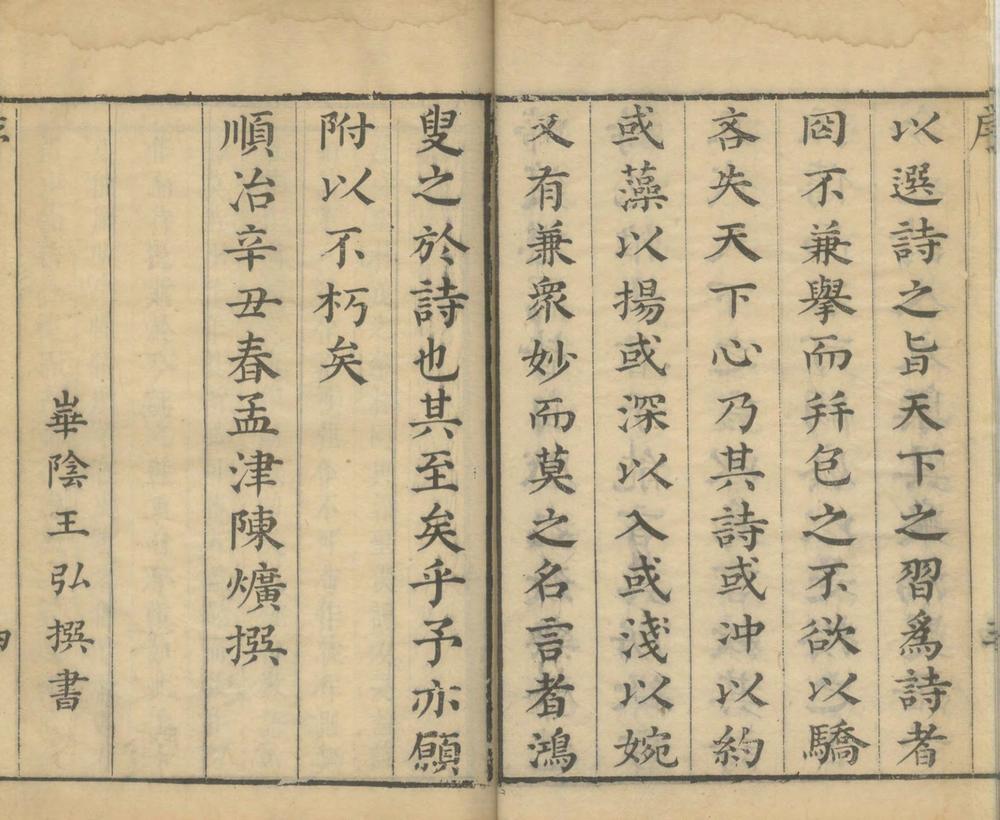 以選詩之旨天下之習爲詩者
罔不兼舉而幷包之不欲以驕
吝失天下心乃其詩或冲以約
或藻以揚或深以入或淺以婉
又有兼衆妙而莫之名言者鴻
叟之於詩也其至矣乎予亦願
附以不朽矣
順治辛丑春孟津陳爌撰
崋陰王弘撰書